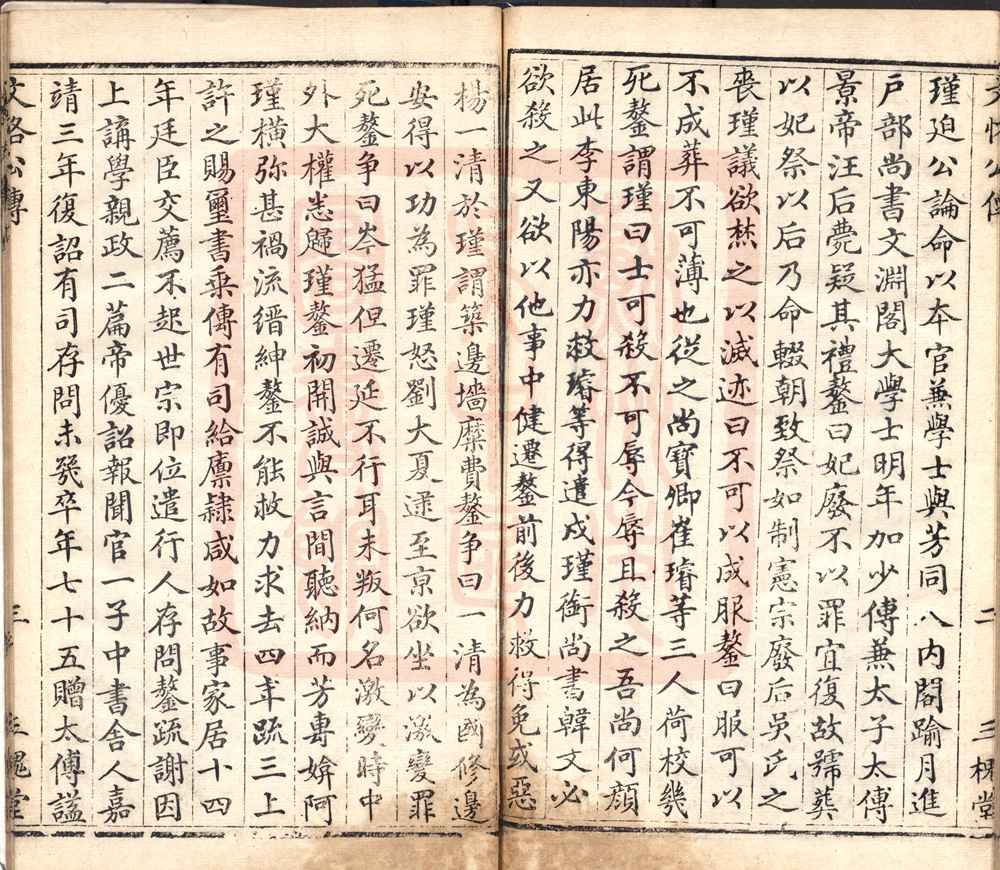 瑾迫公論命以本官兼學士與芳同入內閣踰月進
戶部尚書文淵閣大學士明年加少傅兼太子太傅
景帝汪后薨疑其禮鏊曰妃廢不以罪宜復故號葬
以妃祭以后乃命輟朝致祭如制憲宗廢后吳氏之
喪瑾議欲焚之以滅迹曰不可以成服鏊曰服可以
不成葬不可薄也從之尚寶卿崔璿等三人荷校幾
死鏊謂瑾曰士可殺不可辱今辱且殺之吾尚何顏
居此李東陽亦力救璿等得遣戍瑾銜尚書韓文必
欲殺之又欲以他事中健遷鏊前後力救得免或惡
楊一清於瑾謂築邊墻糜費鏊争曰一清為國修邊
安得以功為罪瑾怒劉大夏逮至京欲坐以激變罪
死鏊争曰岑猛但遷延不行耳未叛何名激變時中
外大權悉歸瑾鏊初開誠與言間聽納而芳專媕阿
瑾橫弥甚禍流縉紳鏊不能救力求去四年疏三上
許之賜璽書乗傳有司給廪隷咸如故事家居十四
年廷臣交薦不起世宗即位遣行人存問鏊疏謝因
上講學親政二篇帝優詔報聞官一子中書舍人嘉
靖三年復詔有司存問未幾卒年七十五贈太傅謚
文恪公傳
三
三槐堂